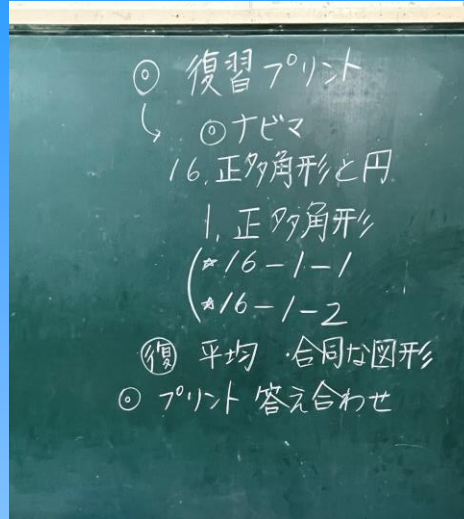 ◎ 復習プリント
↳ ◎ナビマ
16.正多角形と円
1.正多角形
(☆16-1-1
(☆16-1-2
㊝ 平均 ・合同な図形
◎ プリント 答え合わせ